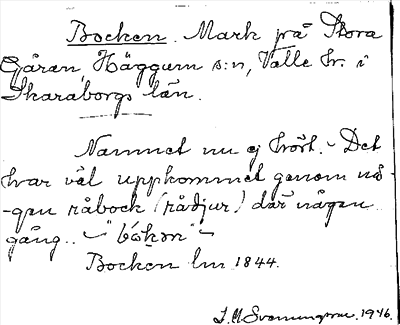 Bocken. Mark på Stora
Gåran, Häggum s:n, Valle hr. i
Skaraborgs län.
Namnet nu ej hört. - Det
har väl uppkommit genom nå-
-gon råbock (rådjur) där någon
gång.. - "bókən" -
Bocken lm 1844.
1946.